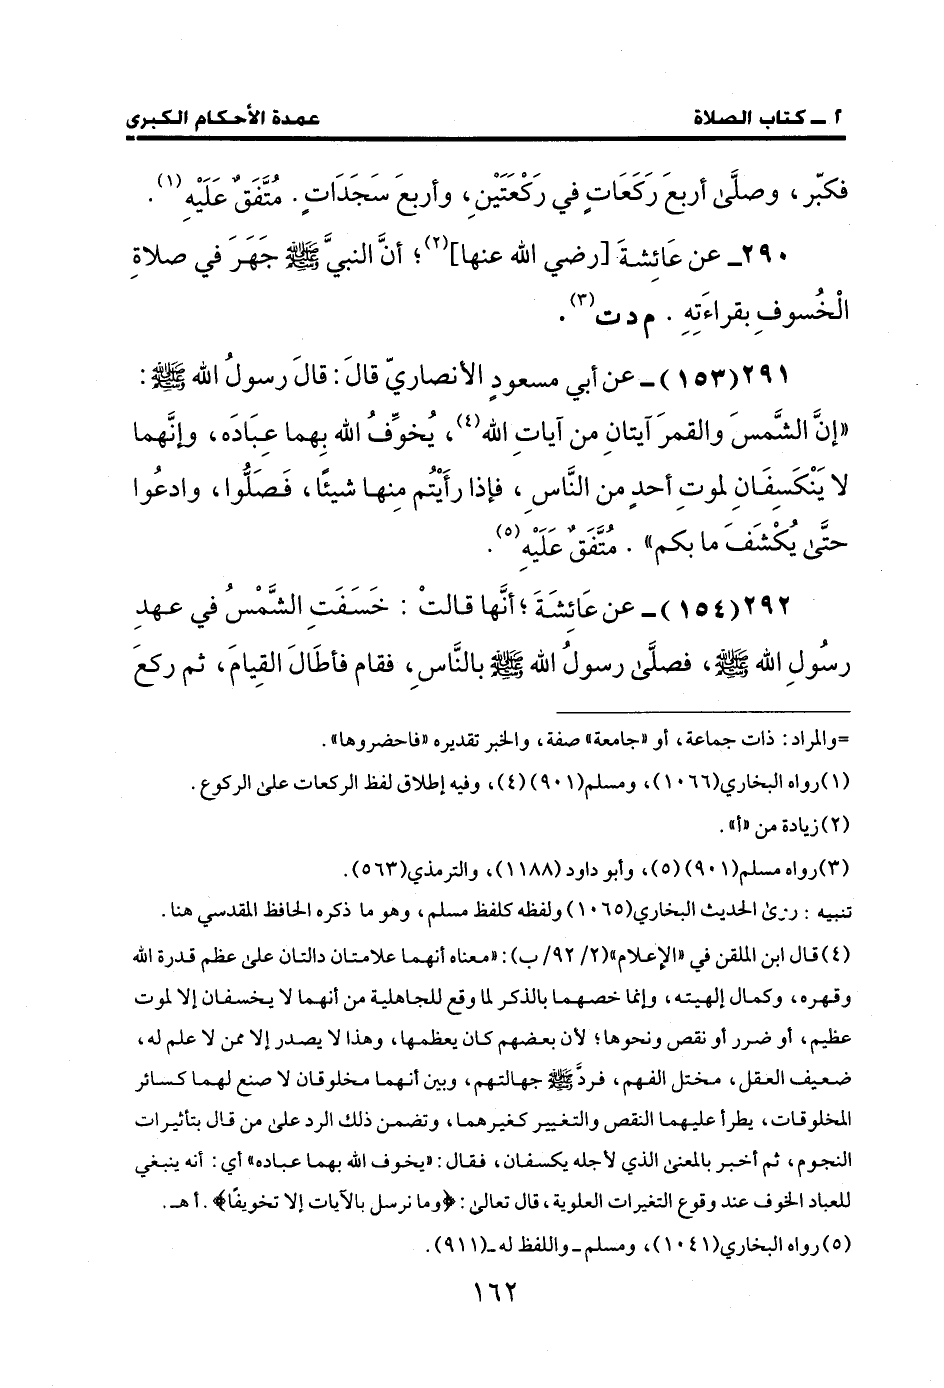 ٢ ــ كتاب الصلاة
عمدة الأحكام الكبرى
فكبّر، وصلَّىٰ أربعَ رَكَعَاتٍ في رَكْعَتَيْنِ، وأربعَ سَجَدَاتٍ. مُتَّفَقٌ عَلَيْهِ(١).
٢٩٠ــ عن عَائِشةَ [رضي الله عنها](٢)؛ أنَّ النبيَّ ﷺ جَهَرَ في صلاةِ
الْخُسوفِ بقراءَتِهِ . م د ت(٣).
٢٩١(١٥٣)ــ عن أبي مسعودٍ الأنصاريّ قالَ: قالَ رسولُ الله ﷺ:
«إنَّ الشَّمسَ والقمرَ آيتان من آياتِ الله(٤)، يُخوِّفُ الله بِهما عِبَادَه، وإنَّهما
لا يَنْكَسِفَانِ لموتِ أحدٍ من النَّاسِ، فإذا رأَيْتُم منها شيئًا، فَصَلُّوا، وادعُوا
حتَّىٰ يُكْشَفَ ما بكم» . مُتَّفَقٌ عَلَيْهِ(٥).
٢٩٢(١٥٤)ــ عن عَائِشَةَ؛ أنَّها قالتْ: خَسَفَتِ الشَّمْسُ في عهدِ
رسُولِ الله ﷺ، فصلَّىٰ رسولُ الله ﷺ بالنَّاسِ، فقام فأطَالَ القِيامَ، ثم ركعَ
=والمراد: ذات جماعة، أو «جامعة» صفة، والخبر تقديره «فاحضروها».
(١) رواه البخاري (١٠٦٦)، ومسلم (٩٠١) (٤)، وفيه إطلاق لفظ الركعات علىٰ الركوع.
(٢) زيادة من «أ».
(٣) رواه مسلم (٩٠١) (٥)، وأبو داود (١١٨٨)، والترمذي (٥٦٣).
تنبيه: روىٰ الحديث البخاري (١٠٦٥) ولفظه كلفظ مسلم، وهو ما ذكره الحافظ المقدسي هنا.
(٤) قال ابن الملقن في «الإعلام» (٢/ ٩٢/ ب): «معناه أنهما علامتان دالتان علىٰ عظم قدرة الله
وقهره، وكمال إلهيته، وإنما خصهما بالذكر لما وقع للجاهلية من أنهما لا يخسفان إلا لموت
عظيم، أو ضرر أو نقص ونحوها؛ لأن بعضهم كان يعظمها، وهذا لا يصدر إلا ممن لا علم له،
ضعيف العقل، مختل الفهم، فردَّ ﷺ جهالتهم، وبين أنهما مخلوقان لا صنع لهما كسائر
المخلوقات، يطرأ عليهما النقص والتغيير كغيرهما، وتضمن ذلك الرد علىٰ من قال بتأثيرات
النجوم، ثم أخبر بالمعنىٰ الذي لأجله يكسفان، فقال: «يخوف الله بهما عباده» أي: أنه ينبغي
للعباد الخوف عند وقوع التغيرات العلوية، قال تعالىٰ: ﴿وما نرسل بالآيات إلا تخويفًا﴾. أ هـ.
(٥) رواه البخاري (١٠٤١)، ومسلم ــ واللفظ له ــ (٩١١).
١٦٢